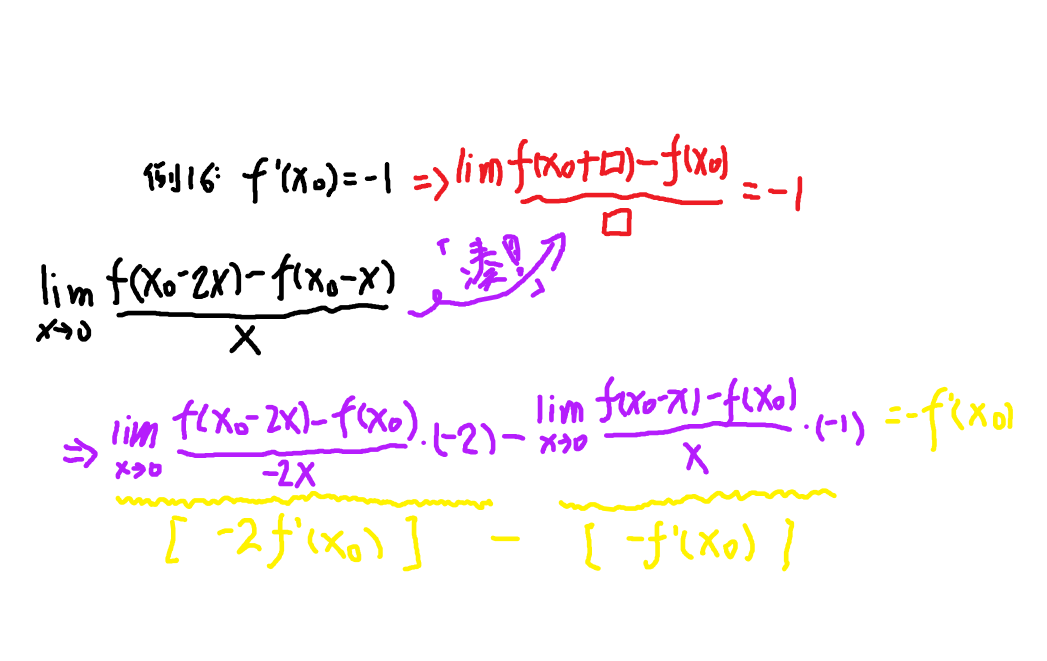 例16: f'(x₀)=-1 => lim f(x₀+□)-f(x₀) / □ = -1
lim x→0 f(x₀-2x)-f(x₀-x) / x 「凑!」
=> lim x→0 f(x₀-2x)-f(x₀) / -2x ·(-2) - lim x→0 f(x₀-x)-f(x₀) / x ·(-1) = -f'(x₀)
[ -2f'(x₀) ] - [ -f'(x₀) ]